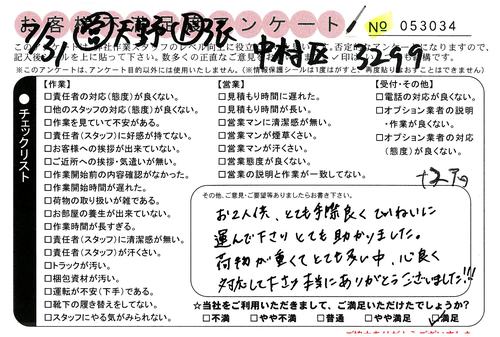 お客様 アンケート! № 053034
7/31 天野 中村区 3299
【作業】
□責任者の対応(態度)が良くない。
□他のスタッフの対応(態度)が良くない。
□作業を見ていて不安がある。
□責任者(スタッフ)に好感が持てない。
□お客様への挨拶が出来ていない。
□ご近所への挨拶・気遣いが無い。
□作業開始前の内容確認がなかった。
□作業開始時間が遅れた。
□荷物の取り扱いが雑である。
□お部屋の養生が出来ていない。
□作業時間が長すぎる。
□責任者(スタッフ)に清潔感が無い。
□責任者(スタッフ)が汗くさい。
□トラックが汚い。
□梱包資材が汚い。
□運転が不安(下手)である。
□靴下の履き替えをしてない。
□スタッフにやる気がみられない。
●チェックリスト
【営業】
□見積もり時間に遅れた。
□見積もり時間が長い。
□営業マンに清潔感が無い。
□営業マンが煙草くさい。
□営業マンが汗くさい。
□営業態度が良くない。
□営業の説明と作業が一致してない。
【受付・その他】
□電話の対応が良くない。
□オプション業者の説明
・作業が良くない。
□オプション業者の対応
(態度)が良くない。
その他、ご意見・ご要望等ありましたらお書き下さい。
お2人供、とても手際良くていねいに
運んで下さりとても助かりました。
荷物が重くてとても多い中、心良く
対応して下さり本当にありがとうございました!!!
☆当社をご利用いただきまして、ご満足いただけたでしょうか?
□不満 □やや不満 □普通 □やや満足 ☑満足